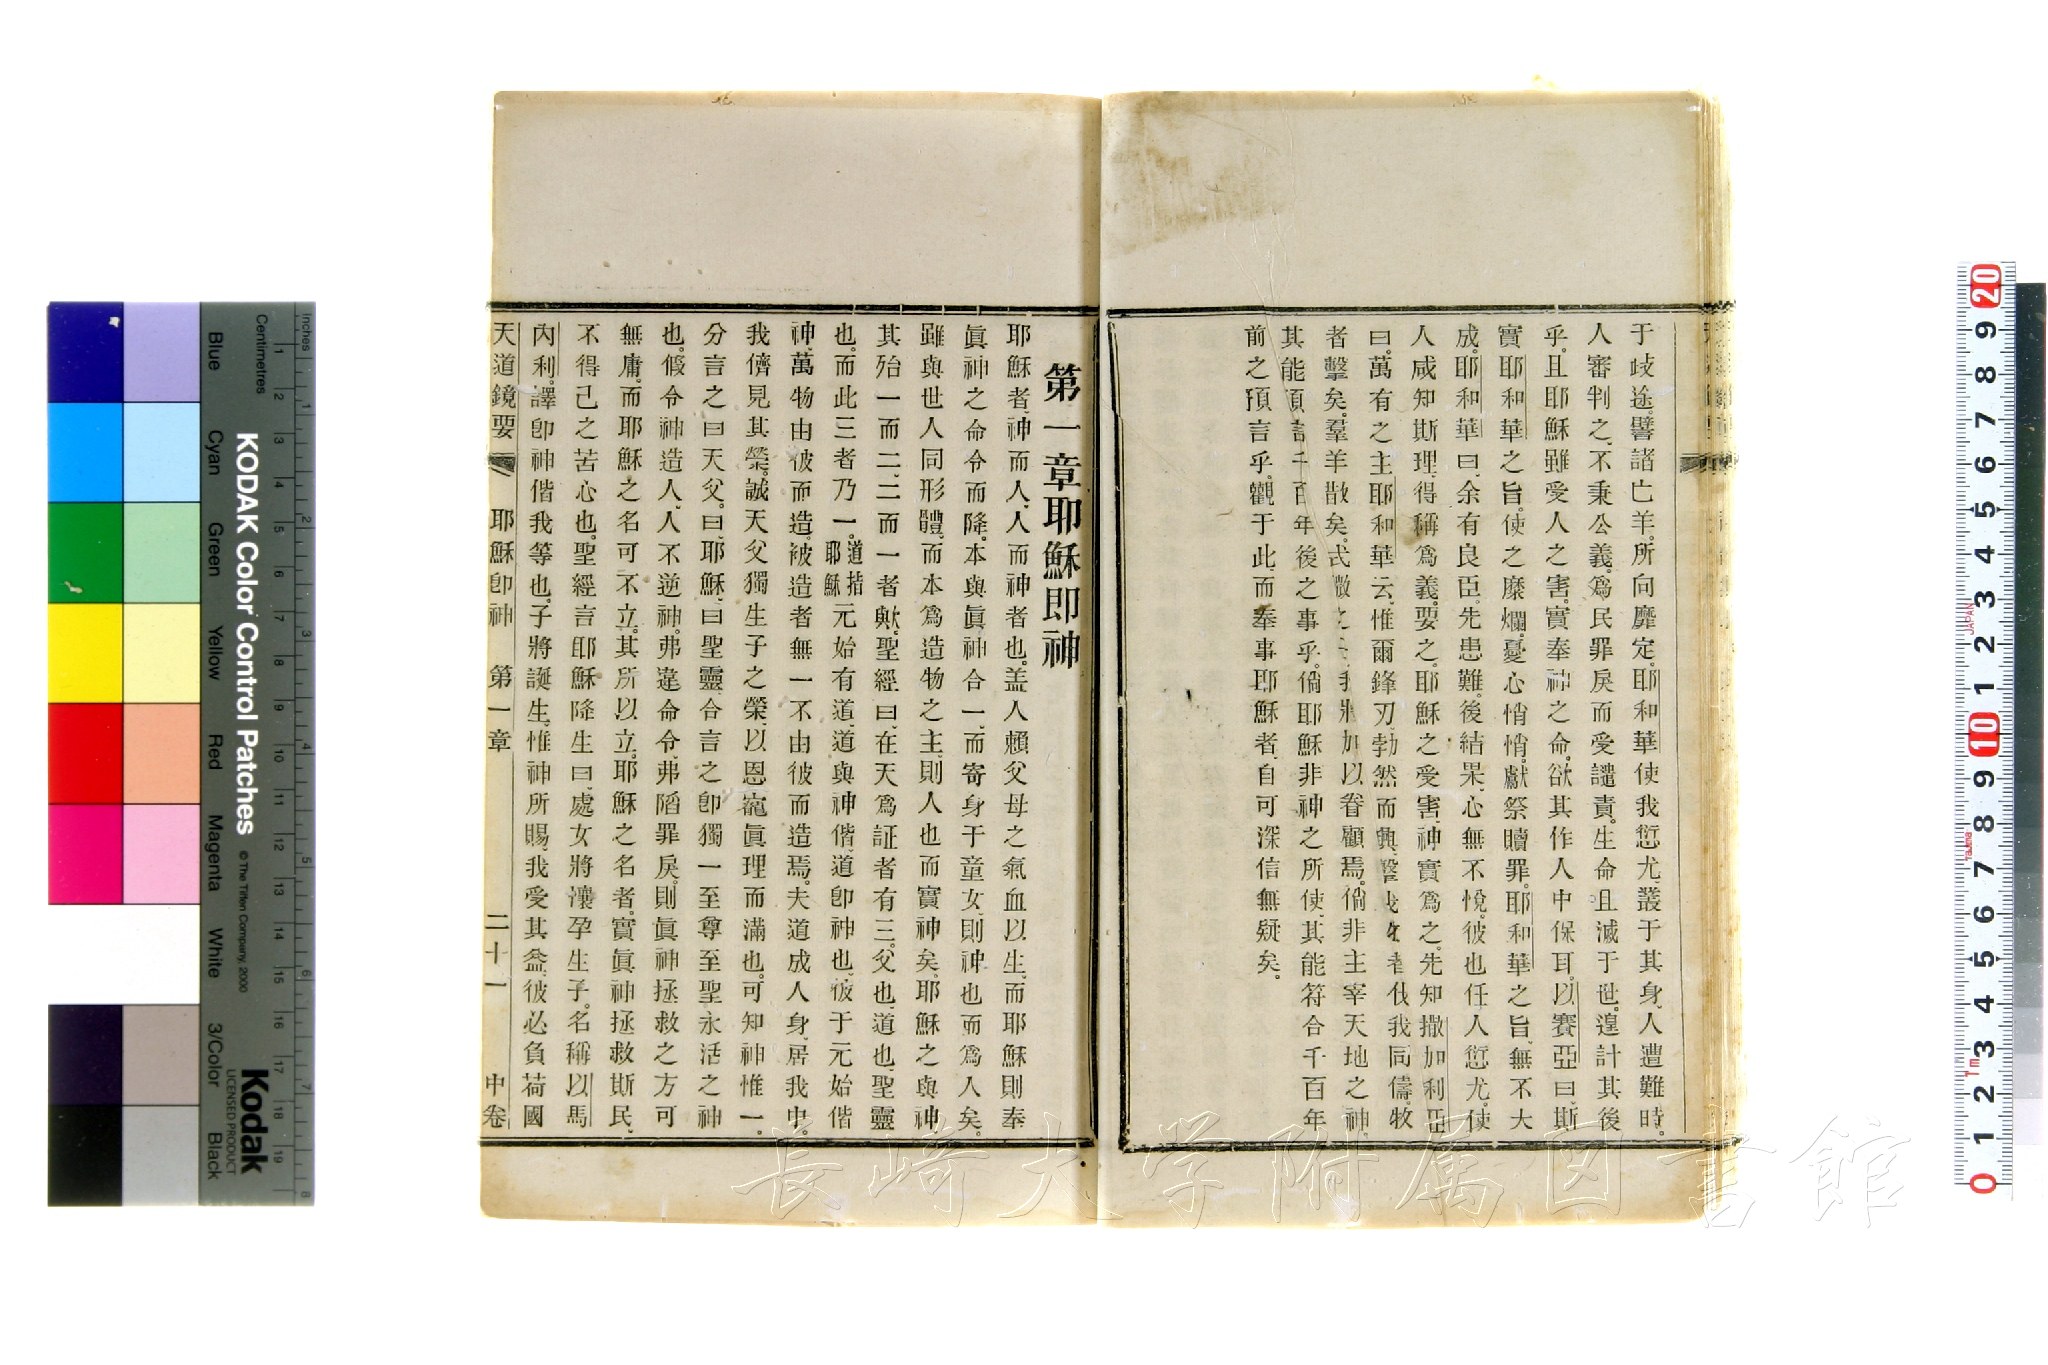 于歧途、譬諸亡羊、所向靡定、耶和華使我愆尤、叢于其身、人遭難時、
人審判之、不秉公義、爲民罪戾而受譴責、生命且滅于世、遑計其後
乎、且耶穌雖受人之害、實奉神之命、欲其作人中保耳、以賽亞曰、斯
實耶和華之旨、使之糜爛、憂心悄悄、獻祭贖罪、耶和華之旨、無不大
成、耶和華曰、余有良臣、先患難、後結果、心無不悅、彼也任人愆尤、使
人咸知斯理、得稱爲義、要之、耶穌之受害、神實爲之、先知撒加利亞
曰、萬有之主耶和華云、惟爾鋒刃、勃然而興、擊我牧者、伐我同儔、牧
者擊矣、羣羊散矣、式微之子、我將加以眷顧焉、倘非主宰天地之神、
其能預言千百年後之事乎、倘耶穌非神之所使、其能符合千百年
前之預言乎、觀于此、而奉事耶穌者、自可深信無疑矣、
第一章耶穌即神
耶穌者、神而人、人而神者也、盖人賴父母之氣血以生、而耶穌則奉
眞神之命令而降、本與眞神合一、而寄身于童女、則神也而爲人矣、
雖與世人同形體、而本爲造物之主、則人也而實神矣、耶穌之與神、
其殆一而二、二而一者歟、聖經曰、在天爲証者有三、父也、道也、聖靈
也、而此三者乃一、道指耶穌元始有道、道與神偕、道卽神也、彼于元始偕
神、萬物由彼而造、被造者無一不由彼而造焉、夫道成人身、居我中、
我儕見其榮、誠天父獨生子之榮、以恩寵眞理而滿也、可知神惟一、
分言之曰天父、曰耶穌、曰聖靈、合言之卽獨一至尊至聖、永活之神
也、假令神造人、人不逆神、弗違命令、弗陷罪戾、則眞神拯救之方可
無庸、而耶穌之名可不立、其所以立耶穌之名者、實眞神拯救斯民、
不得已之苦心也、聖經言耶穌降生曰、處女將瀼孕生子、名稱以馬
內利、譯卽神偕我等也、子將誕生、惟神所賜、我受其益、彼必負荷國
天道鏡要 耶穌卽神 第一章 二十一 中卷
KODAK Color Control Patches
© The Tiffen Company, 2000
Kodak
LICENSED PRODUCT
Inches
Centimetres
Blue Cyan Green Yellow Red Magenta White 3/Color Black
長崎大学附属図書館
JAPAN